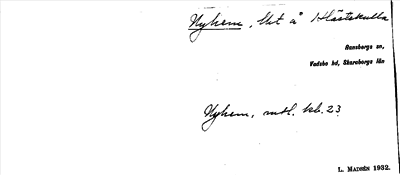 Nyhem, lht å Hästekulla
Ransbergs sn,
Vadsbo hd, Skaraborgs län
Nyhem, mtl. kb. 23.
L. MADRÉN 1932.